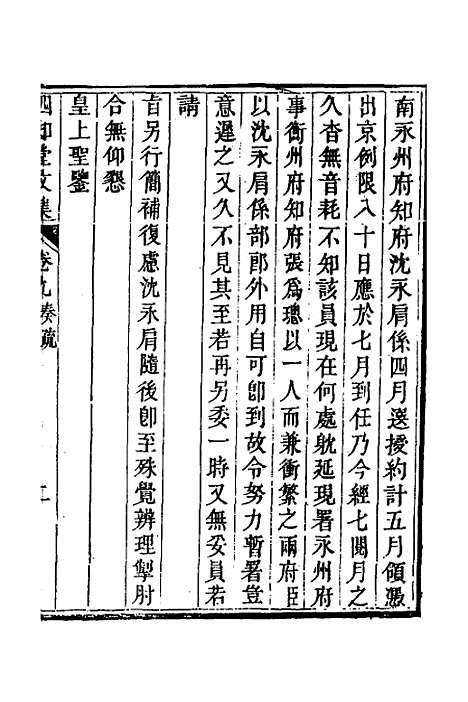 南永州府知府沈永肩係四月選授約計五月領憑
出京例限八十日應於七月到任乃今經七閱月之
久杳無音耗不知該員現在何處躭延現署永州府
事衡州府知府張爲璁以一人而兼衝繁之兩府臣
以沈永肩係部郎外用自可卽到故令努力暫署豈
意遲之又久不見其至若再另委一時又無妥員若
請
旨另行簡補復慮沈永肩隨後卽至殊覺辨理掣肘
合無仰懇
皇上聖鑒
四知堂文集
卷九奏疏